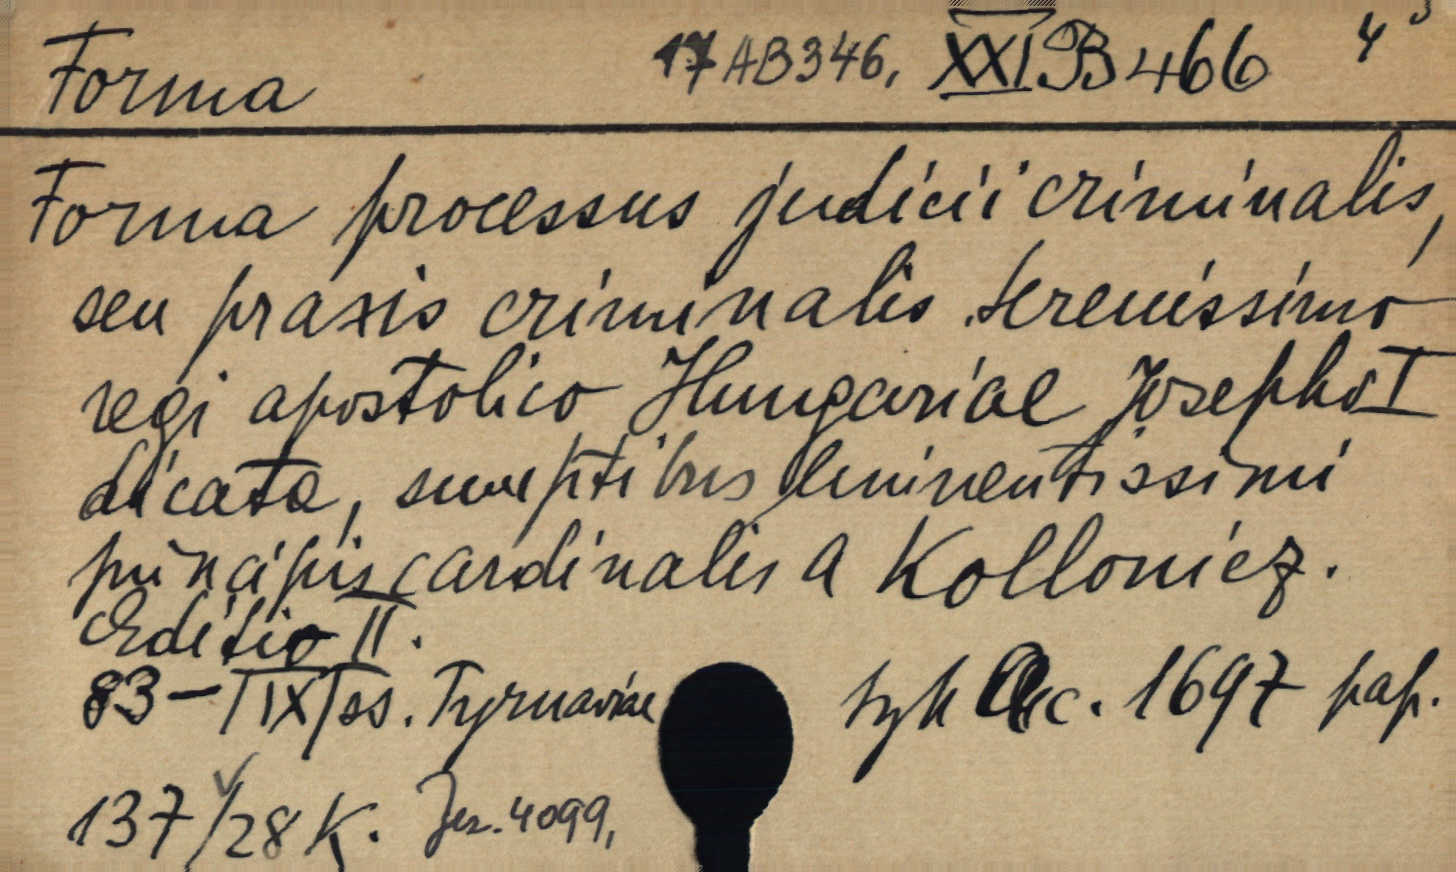 Forma 17 AB 346, XXI B 466 4°
Forma processus judicii criminalis,
seu praxis criminalis serenissimo
regi apostolico Hungariae Josepho I
dicata, sumptibus eminentissimi
principis cardinalis a Kollonicz.
Editio II.
83-|IX| ss. Tyrnaviae typ Ac. 1697 pap.
137/28 K. Jez. 4099,